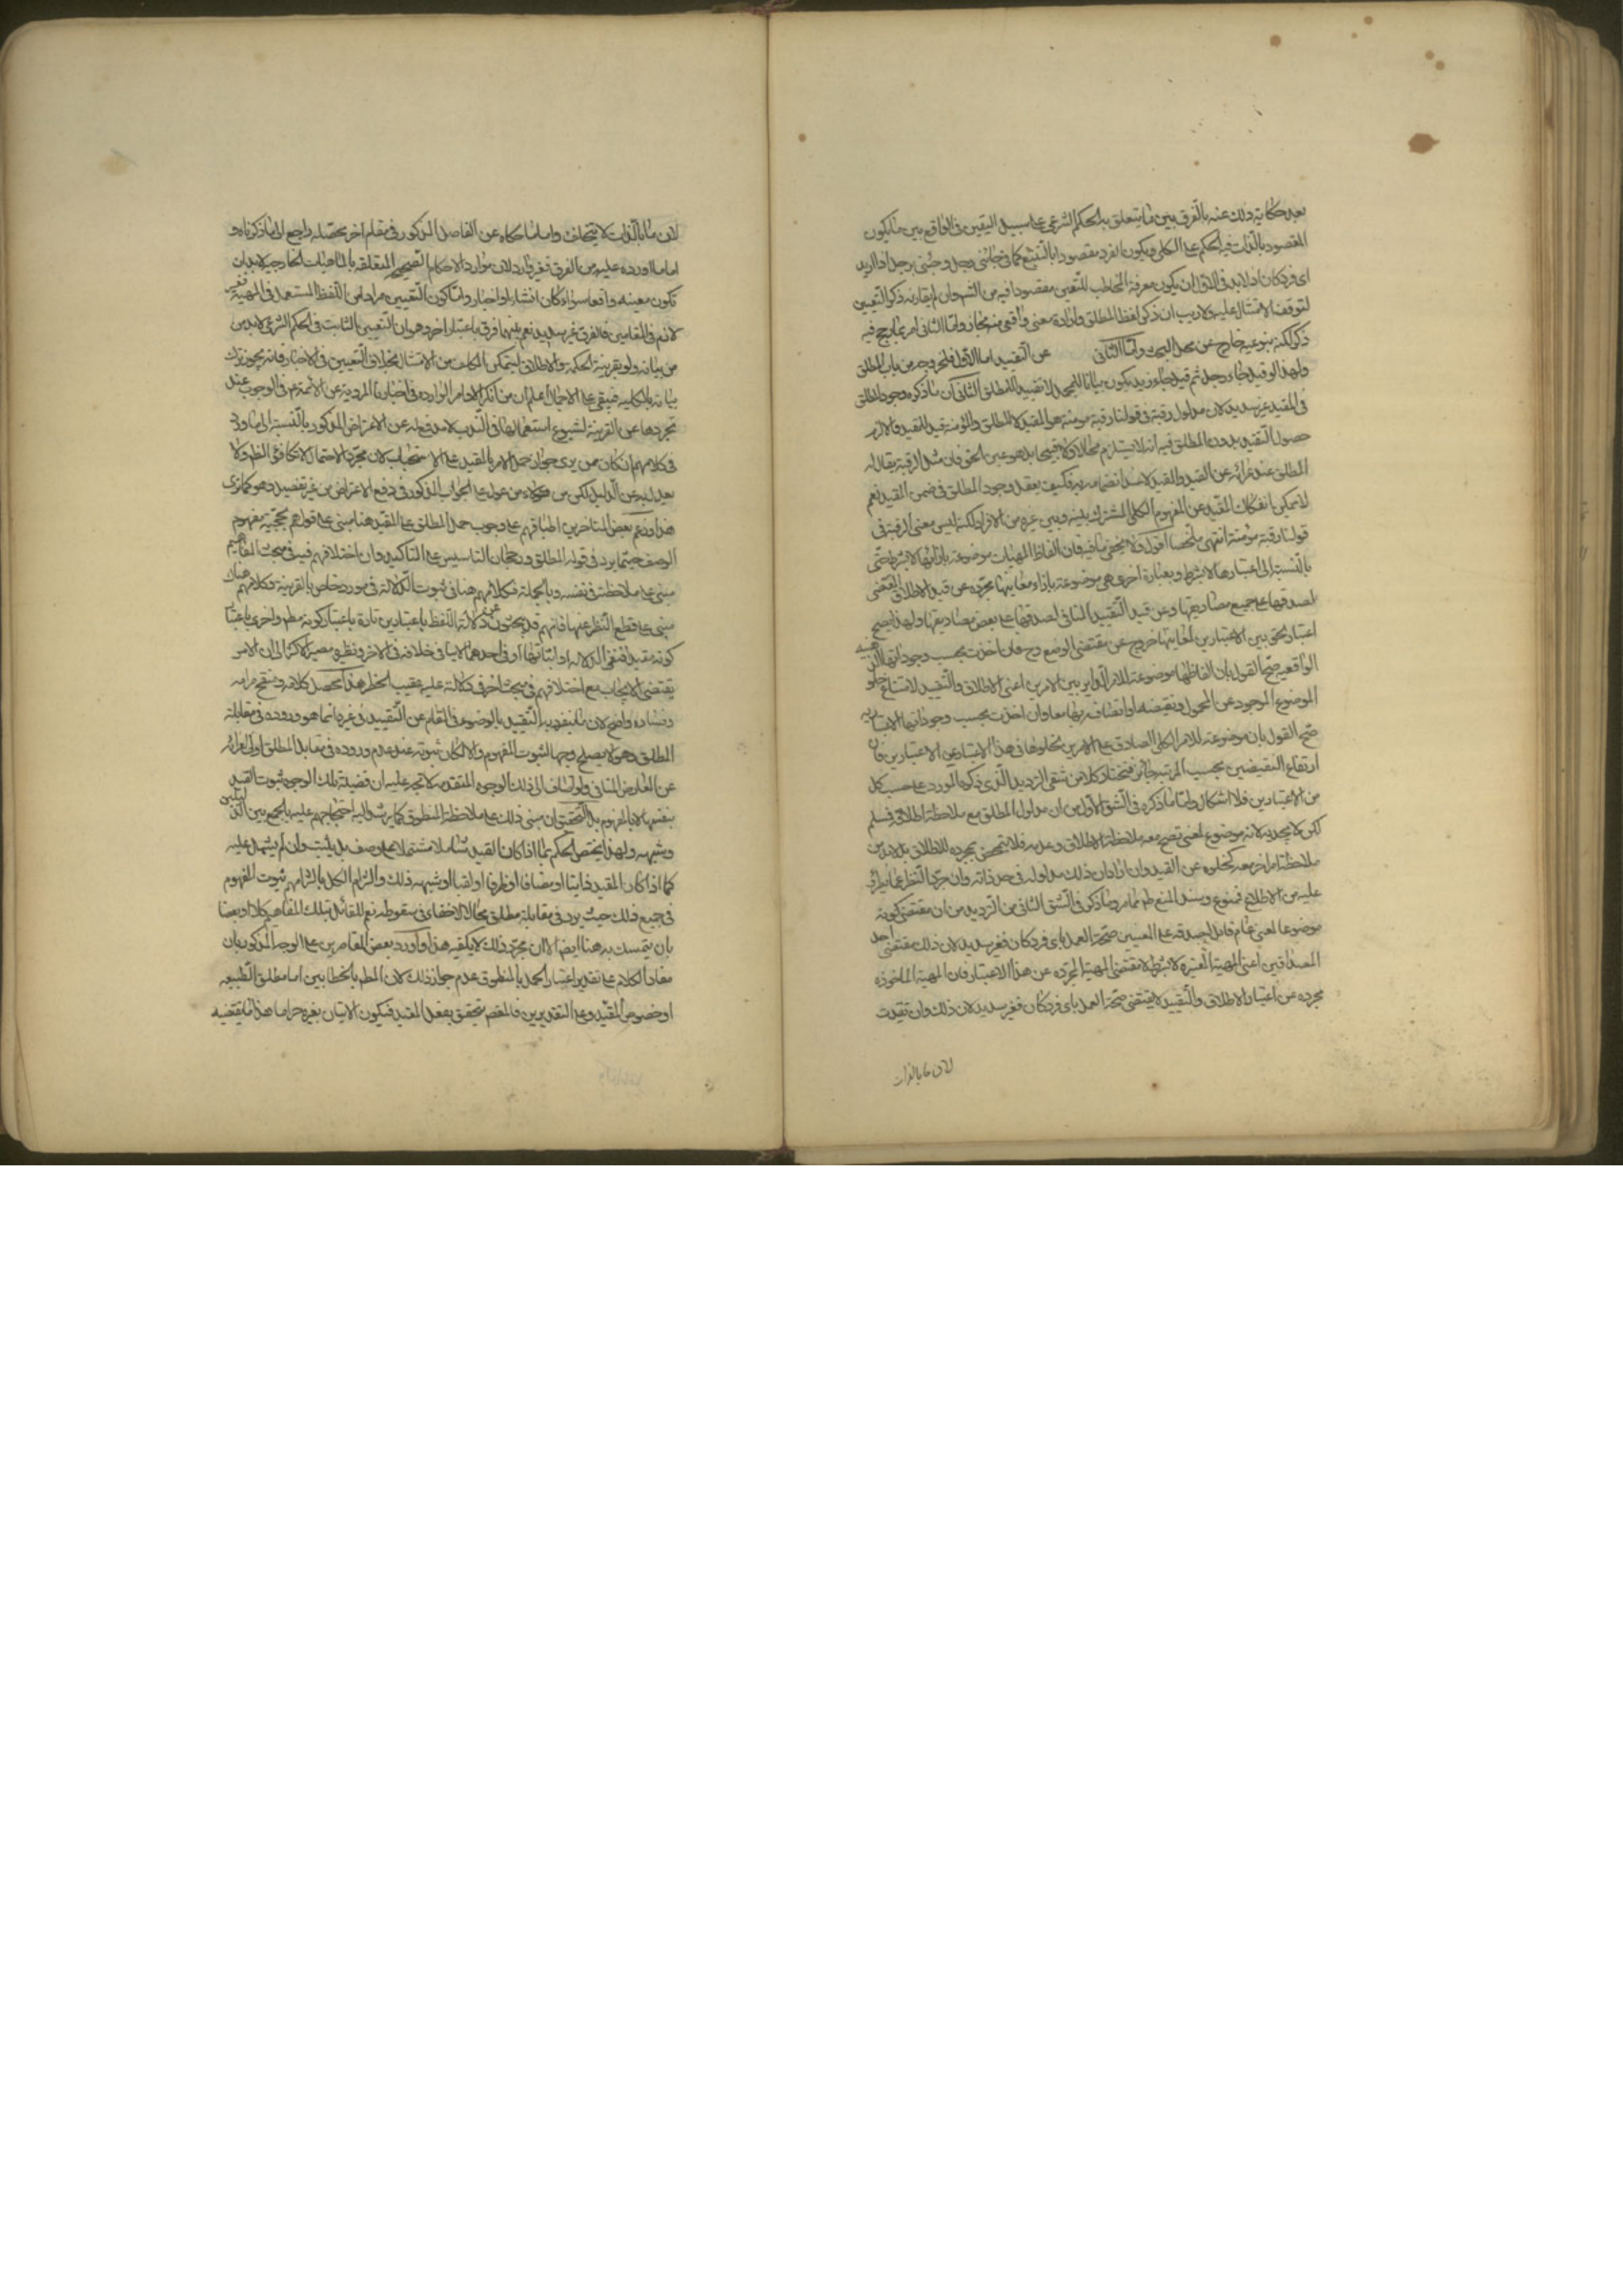 بعد حكاية ذلك عنه بالفرق بين ما يتعلق به الحكم الشرعي على سبيل اليقين في الواقع بين ما يكون
المقصود بالذات فيه الحكم على الكلي ويكون الفرد مقصودا بالتبع كما في جائني رجل وجئني برجل اذا اريد
اى فرد كان اذ لا بد في الاول ان يكون معرفة المخاطب للتعين مقصودا فيه من اللفظ وان لم يقارنه ذكر التعيين
لتوقف الامتثال عليه ولا ريب ان ذكر لفظ المطلق وارادة معنى واقعي منه مجاز واما الثاني
ذكر لكنه بنوعيه خارج عن محل البحث واما الثاني عن التقييد اما الاول فلخروجه من باب المطلق
ولهذا لو قيل جاء رجل ثم قيل جاء زيد يكون بيانا للمجمل لا تقييد للمطلق الثاني ان ما ذكره من وجود المطلق
في المقيد غير سديد لان مدلول رقبة في قولنا رقبة مومنة هو المقيد لا المطلق والمؤمنة قيد للمقيد فاللازم
حصول التقييد بدون المطلق فيه انه لا يستلزم محالا ولا قبيحا بل هو عين الحق فان مثل الرقبة يقال له
المطلق عند عرائه عن القيد والمقيد انضمامه به فكيف يعقل وجود المطلق في ضمن القيد نعم
لا يمكن انفكاك المقيد عن المفهوم الكلي المشترك بينه وبين غيره من الافراد لكنه ليس معنى الرقبة في
قولنا رقبة مؤمنة انتهى ملخصا اقول ولا يخفى ما فيه فان الفاظ المهيات موضوعة بازائها لا بشرط حتى
بالنسبة الى اعتبارها لا بشرط وبعبارة اخرى هي موضوعة بازاء معانيها مجردة عن قيد الاطلاق المقتضي
لصدقها على جميع مصاديقها وعن قيد التقييد المنافي لصدقها على بعض مصاديقها ولهذا يصح
اعتبار لحوق بين الاعتبارين لمعانيها خروج عن مقتضى الوضع وح فان اخذت بحسب وجوداتها الذهنيه
الواقعيه صح القول بان الفاظها موضوعة للامر الداير بين الامرين اعني الاطلاق والتقييد لامتناع خلو
الموضوع الموجود عن المحمول ونقيضه او اتصاف بهما معا وان اخذت بحسب وجوداتها الاعتباريه
صح القول بان موضوعة للامر الكلي الصادق على الامرين لخلوها في هذا الاعتبار عن الاعتبارين فان
ارتفاع النقيضين بحسب المرتبة جائز فنختار كلا من شقي الترديد الذي ذكره المورد على حسب كل
من الاعتبارين فلا اشكال واما ما ذكره في الشق الاول من ان مدلول المطلق مع ملاحظة اطلاقه فسلم
لكن لا يجديه لانه موضوع لمعنى تصح معه ملاحظة الاطلاق وعدمه فلا يتمحض بمجرده للاطلاق بل لا بد من
ملاحظة امر اخر معه كخلوه عن القيد وان اراد ان ذلك مدلوله في حد ذاته وان جرى النظر عما يطرؤ
عليه من الاطلاق فممنوع وسند المنع ظم مما مر وما ذكر في الشق الثاني من الترديد من ان مقتضى كونه
موضوعا لمعنى عام قابل لصدقه على المعنيين صحة العمل باى فرد كان فغير سديد لان ذلك مقتضى احد
المصداقين اعني المهية المعتبره لا بشرط لا مقتضى المهية المجرده عن هذا الاعتبار فان المهية الماخوذه
مجرده عن اعتبار الاطلاق والتقييد لا يقتضى صحة العمل باى فرد كان فغير سديد لان ذلك وان تقيدت
لان ما بالذات
لان ما بالذات لا يتخلف واما ما حكاه عن الفاضل المذكور في مقام اخر فحصله راجع الى ما ذكرناه و
اما ما اورده عليه من الفرق فغير وارد لان موارد الاحكام الصحيح المتعلقه بالماهيات الخارجيه لا بد ان
تكون معينه واقعا سواء كان انشاء او اخبار واما كون التعيين مرادا من اللفظ المستعمل في المهية فغير
لازم في المقامين فالفرق غير سديد نعم بينهما فرق باعتبار اخر وهو ان التعيين الثابت في الحكم الشرعي لا بد من
من بيانه ولو بقرينة الحكمه والاطلاق ليتمكن المكلف من الامتثال بخلاف التعيين في الاخبار فانه يجوز ترك
بيانه بالكليه فيبقى على الاجمال اعلم ان من انكر الاوامر الوارده في اخبارنا المروية عن الائمة ع في الوجوب عند
تجردها عن القرينة لشيوع استعمالها في الندب لا مدفع له عن الاعتراض المذكور بالنسبة الى ما ورد
في كلامهم ان كان ممن يرى جواز حمل الامر بالمقيد على الاستحباب لان مجرد الاحتمال لا يكافؤ الظهور
يعدل به عن الدليل لكن من هؤلاء من عول على الجواب المذكور في دفع الاعتراض من غير تفصيل وهو كما ترى
هذا وزعم بعض المتاخرين اطباقهم على وجوب حمل المطلق على المقيد هنا مبنى على قولهم بحجية مفهوم
الوصف حيثما يرد في قوله المطلق ورجحان التاسيس على التاكيد وان اختلافهم فيه في مبحث المفاهيم
مبنى على ملاحظته في نفسه وبالجملة فكلامهم هنا في ثبوت الدلالة في مورد خاص بالقرينة وكلامهم هناك
مبنى على قطع النظر عنها فانهم قد يبحثون عن دلالة اللفظ باعتبارين تارة باعتبار كونه مطم واخرى باعتبار
كونه مقيد فنفي الدلالة او اثباتها في احدهما لا ينافي خلافه في الاخر ونظيره مصير الاكثر الى ان الامر
يقتضى الايجاب مع اختلافهم في مبحث اخر في دلالة عليه عقيب الحظر هذا محصل كلامه ومنقح مرامه
وفساده واضح لان ما ينفرد به التقييد بالوضوع في المقام عن التقييد في غيره انما هو وروده في مقابلة
المطلق وهو لا يصلح وجها لثبوت المفهوم والا لكان ثبوته عند عدم وروده في مقابل المطلق اولى لعرائه
عن المعارض المنافي ولو اضاف الى ذلك الوجوه المتقدمه لاتجه عليه ان قضيته تلك الوجوه ثبوت القيد
بنفسها لا بالمفهوم بل التحقيق ان مبنى ذلك على ملاحظة المنطوق كما يرشد اليه احتجاجهم عليه بالجمع بين الدليلين
وشبهه ولهذا لا يختص الحكم بما اذا كان القيد مشتملا على وصف بل يثبت وان لم يشتمل عليه
كما اذا كان المقيد ذاتيا او مضافا او ظرفا او لقبا او شبهه ذلك والتزام الكل بالتزامهم ثبوت المفهوم
في جميع ذلك حيث يرد في مقابلة مطلق مما لا خفاء في سقوطه نعم للقائل بتلك المفاهيم كلا او بعضا
بان يتمسك به هنا ايضا الا ان مجرد ذلك لا يكفيه هذا واورد بعض المعاصرين على الوجه المذكور بان
مفاد الكلام على تقدير اعتبار الحمل بالمنطوق عدم جواز ذلك لان المطم بالخطابين اما مطلق الطبيعه
او خصوص المقيد وعلى التقديرين فالمقصم يتحقق بفعل المقيد فيكون الاتيان بغيره حراما هذا ما يقتضيه